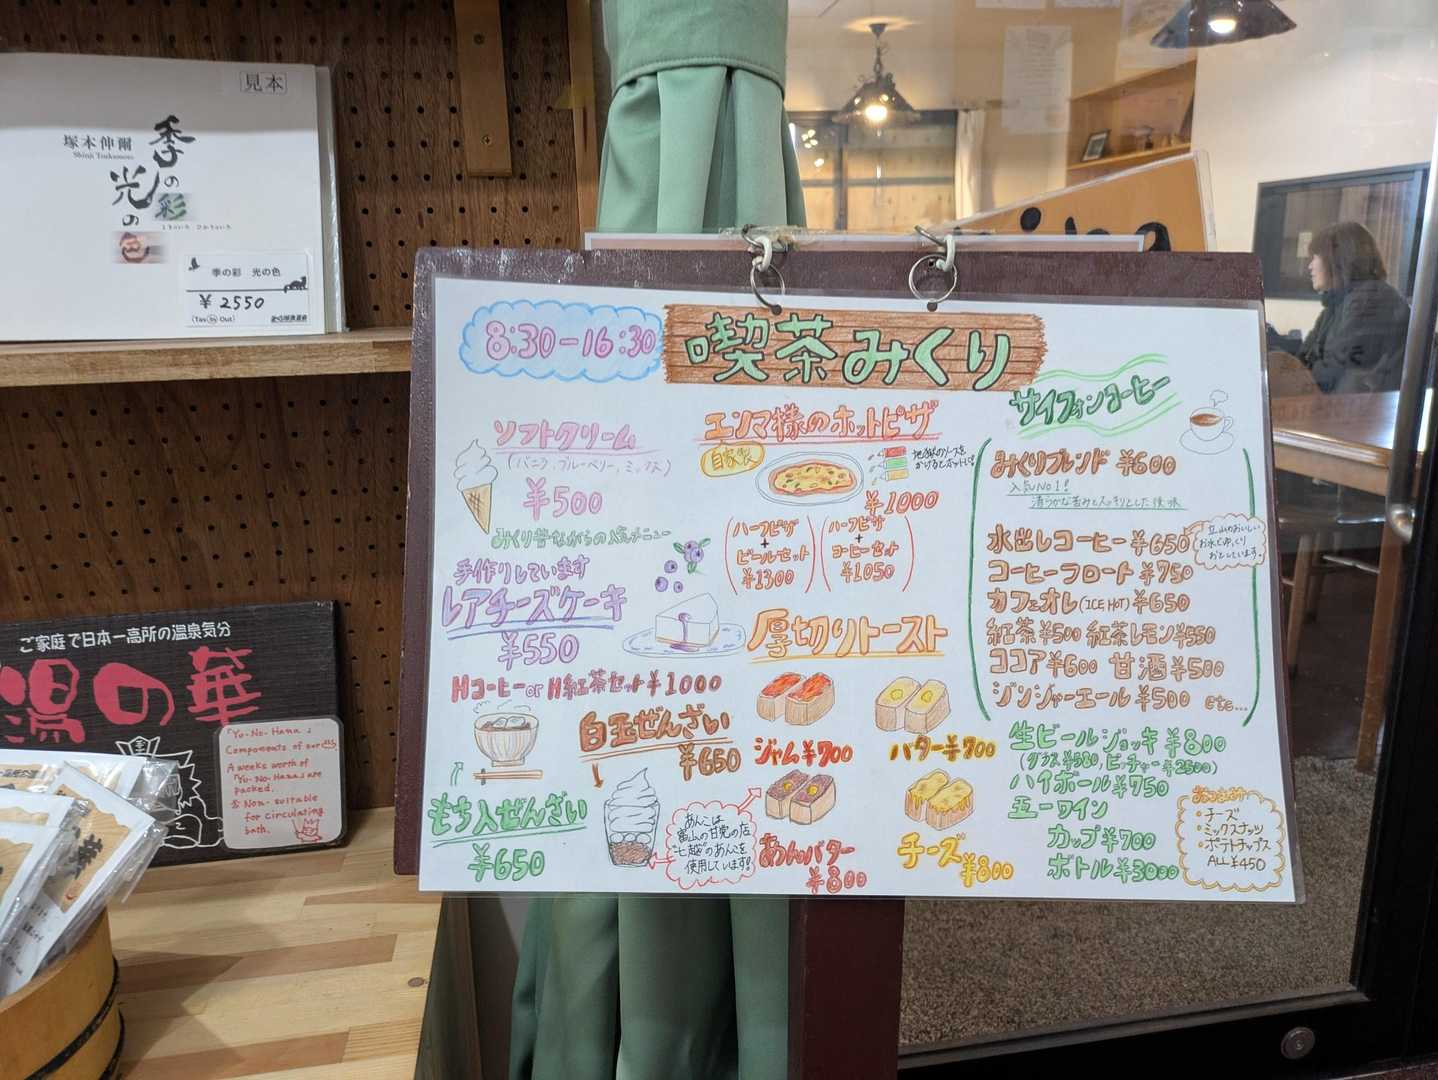 見本
塚本伸爾
Shinji Tsukamoto
季の彩
光の
ときのいろ ひかりのいろ
季の彩 光の色
¥2550
(Tax In Out)
ご家庭で日本一高所の温泉気分
湯の華
「Yu-No-Hana」
Components of our
A weeks worth of
「Yu-No-Hana」are
packed.
Non-suitable
for circulating
bath.
8:30-16:30
喫茶みくり
ソフトクリーム
(バニラ、ブルーベリー、ミックス)
¥500
みくり昔ながらの人気メニュー
手作りしています
レアチーズケーキ
¥550
HコーヒーorH紅茶セット¥1000
白玉ぜんざい
¥650
もち入ぜんざい
¥650
あんこは
富山の甘党の店
"七越"のあんこを
使用しています!
エンマ様のホットピザ
自家製
地獄のソースを
かけるとホットに!
¥1000
ハーフピザ
+
ビールセット
¥1300
ハーフピザ
+
コーヒーセット
¥1050
厚切りトースト
ジャム¥700
バター¥700
あんバター
¥800
チーズ
¥800
サイフォンコーヒー
みくりブレンド ¥600
人気NO1!
清らかな苦みとスッキリとした後味
水出しコーヒー¥650
立山のおいしい
お水でゆっくり
おとしています。
コーヒーフロート¥750
カフェオレ(ICE HOT)¥650
紅茶¥500 紅茶レモン¥550
ココア¥600 甘酒¥500
ジンジャーエール¥500 etc...
生ビールジョッキ¥800
(グラス¥580、ピッチャー¥2500)
ハイボール¥750
五一ワイン
カップ¥700
ボトル¥3000
おつまみ
・チーズ
・ミックスナッツ
・ポテトチップス
ALL¥450